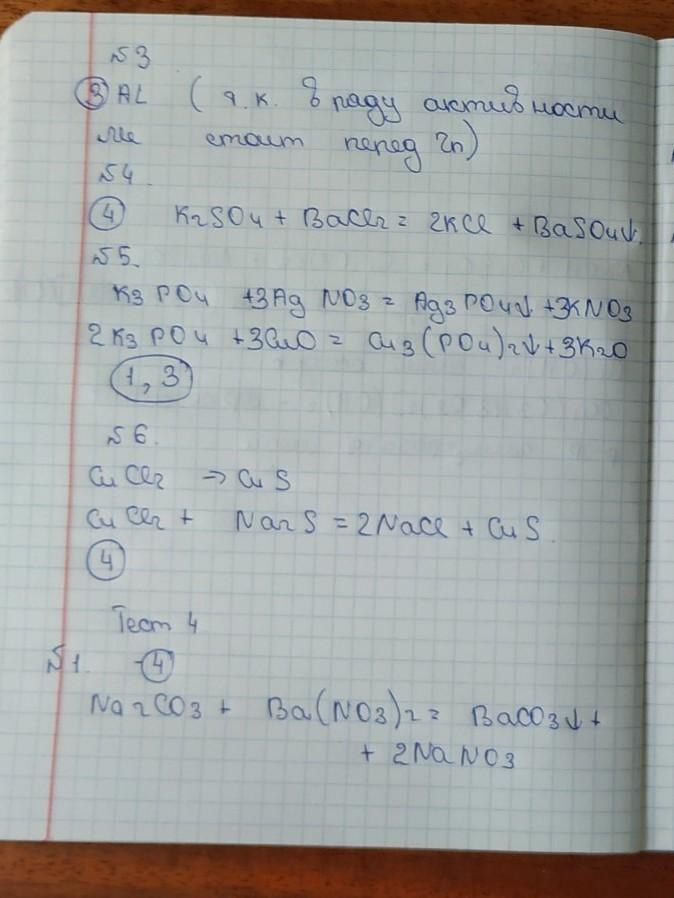 №3
③ AL ( т.к. в ряду активности
Ме стоит перед Zn)
№4.
④ K2SO4 + BaCl2 = 2KCl + BaSO4↓.
№5.
K3PO4 + 3AgNO3 = Ag3PO4↓ + 3KNO3
2K3PO4 + 3CuO = Cu3(PO4)2↓ + 3K2O
1, 3
№6.
CuCl2 → CuS
CuCl2 + Na2S = 2NaCl + CuS.
④
Тест 4
№1. ④
Na2CO3 + Ba(NO3)2 = BaCO3↓ +
+ 2NaNO3